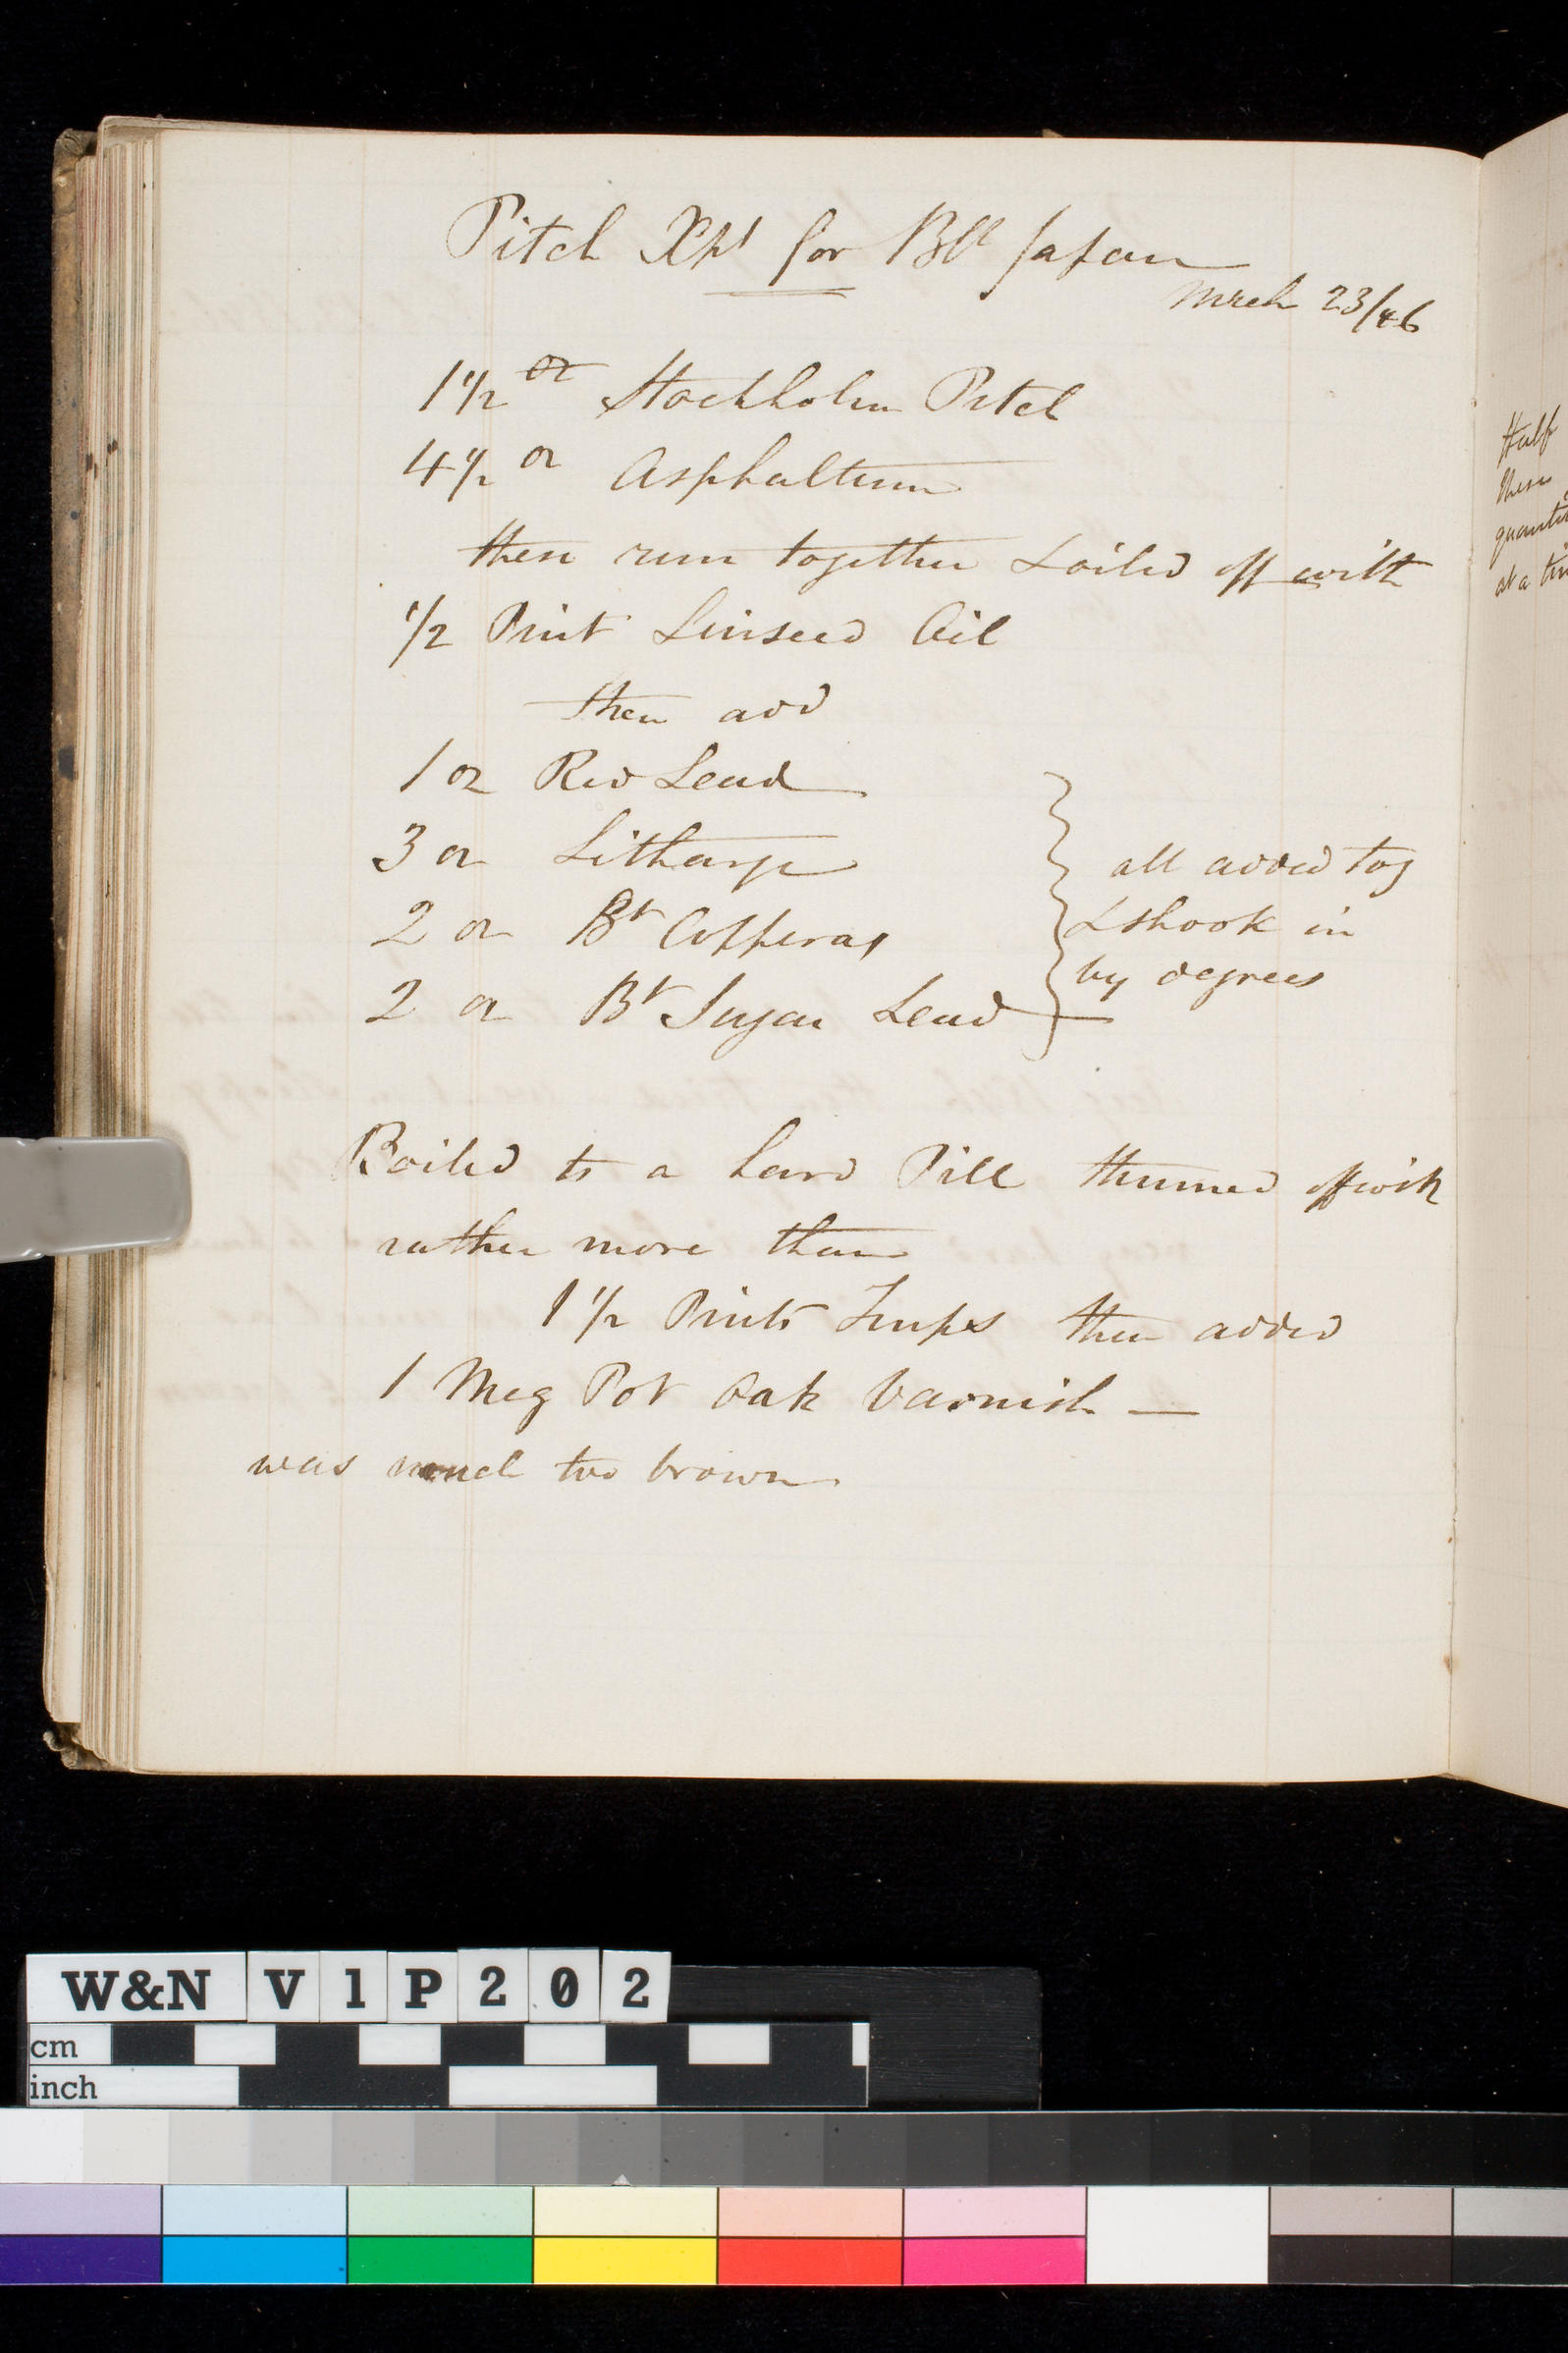 Pitch Xpt for Blk Japan
Mrch 23/46
1 1/2 oz Stockholm Pitch
4 1/2 oz Asphaltum
then run together & oiled off with
1/2 Pint Linseed Oil
then add
1 oz Red Lead
3 oz Litharge
2 oz Bt Copperas
2 oz Bt Sugar Lead
all added tog
& shook in
by degrees
Boiled to a hard Pill thinned off with
rather more than
1 1/2 Pints Turps then added
1 Meg Pot Oak Varnish —
was much too brown
Half
these
at a
W&N V1P202
cm
inch